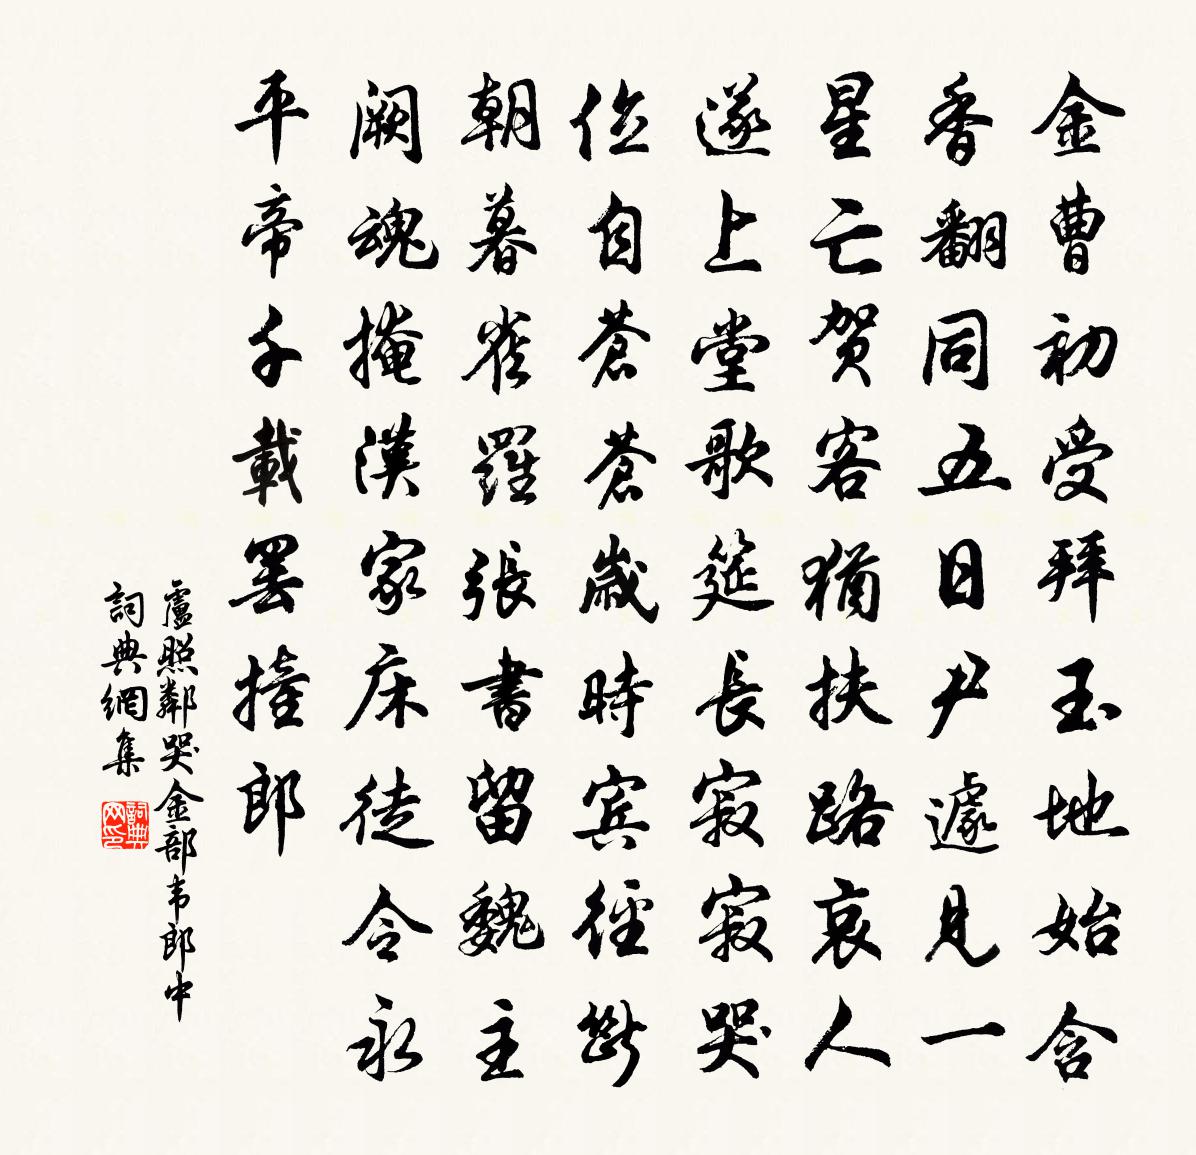 金曹初受拜玉地始含
香翻同五日尹遽見一
星亡贺客猶扶路哀人
遂上堂歌筵長寂寂哭
位自蒼蒼歲時宾徑斷
朝暮雀羅張書留魏主
闕魂掩漢家床徒令永
平帝千載罢撞郎
盧照鄰哭金部韦郎中
詞典網集
詞典网印